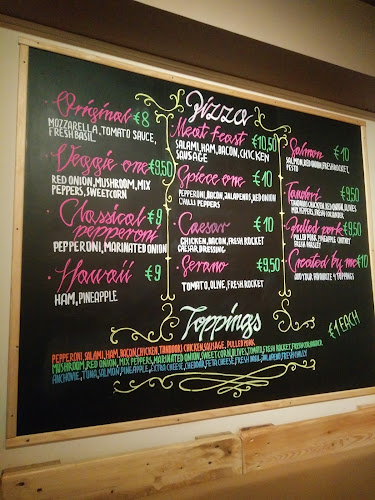 Pizza
Original €8
MOZZARELLA, TOMATO SAUCE,
FRESH BASIL
Veggie one €9,50
RED ONION, MUSHROOM, MIX
PEPPERS, SWEETCORN
Classical €9
pepperoni
PEPPERONI, MARINATED ONION
Hawaii €9
HAM, PINEAPPLE
Meat feast €10,50
SALAMI, HAM, BACON, CHICKEN
SAUSAGE
Spicee one €10
PEPPERONI, BACON, JALAPENOS, RED ONION
CHILLI PEPPERS
Caesar €10
CHICKEN, BACON, FRESH ROCKET
CAESAR DRESSING
Serano €9,50
TOMATO, OLIVE, FRESH ROCKET
Salmon €10
SALMON, RED ONION, FRESH ROCKET,
PESTO
Tandori €9,50
TANDORI CHICKEN, RED ONION, OLIVES
MIX PEPPERS, FRESH CORIANDER
Pulled pork €9,50
PULLED PORK, PINEAPPLE CHUTNEY
FRESH PARSLEY
Created by me €10
ADD YOUR FAVOURITE 4 TOPPINGS
Toppings
€1 EACH
PEPPERONI, SALAMI, HAM, BACON, CHICKEN, TANDORI CHICKEN, SAUSAGE, PULLED PORK
MUSHROOM, RED ONION, MIX PEPPERS, MARINATED ONION, SWEETCORN, OLIVES, TOMATO, FRESH ROCKET, FRESH CORIANDER
ANCHOVIE, TUNA, SALMON, PINEAPPLE, EXTRA CHEESE, CHEDDAR, FETA CHEESE, FRESH BASIL, JALAPENO, FRESH CHILLY